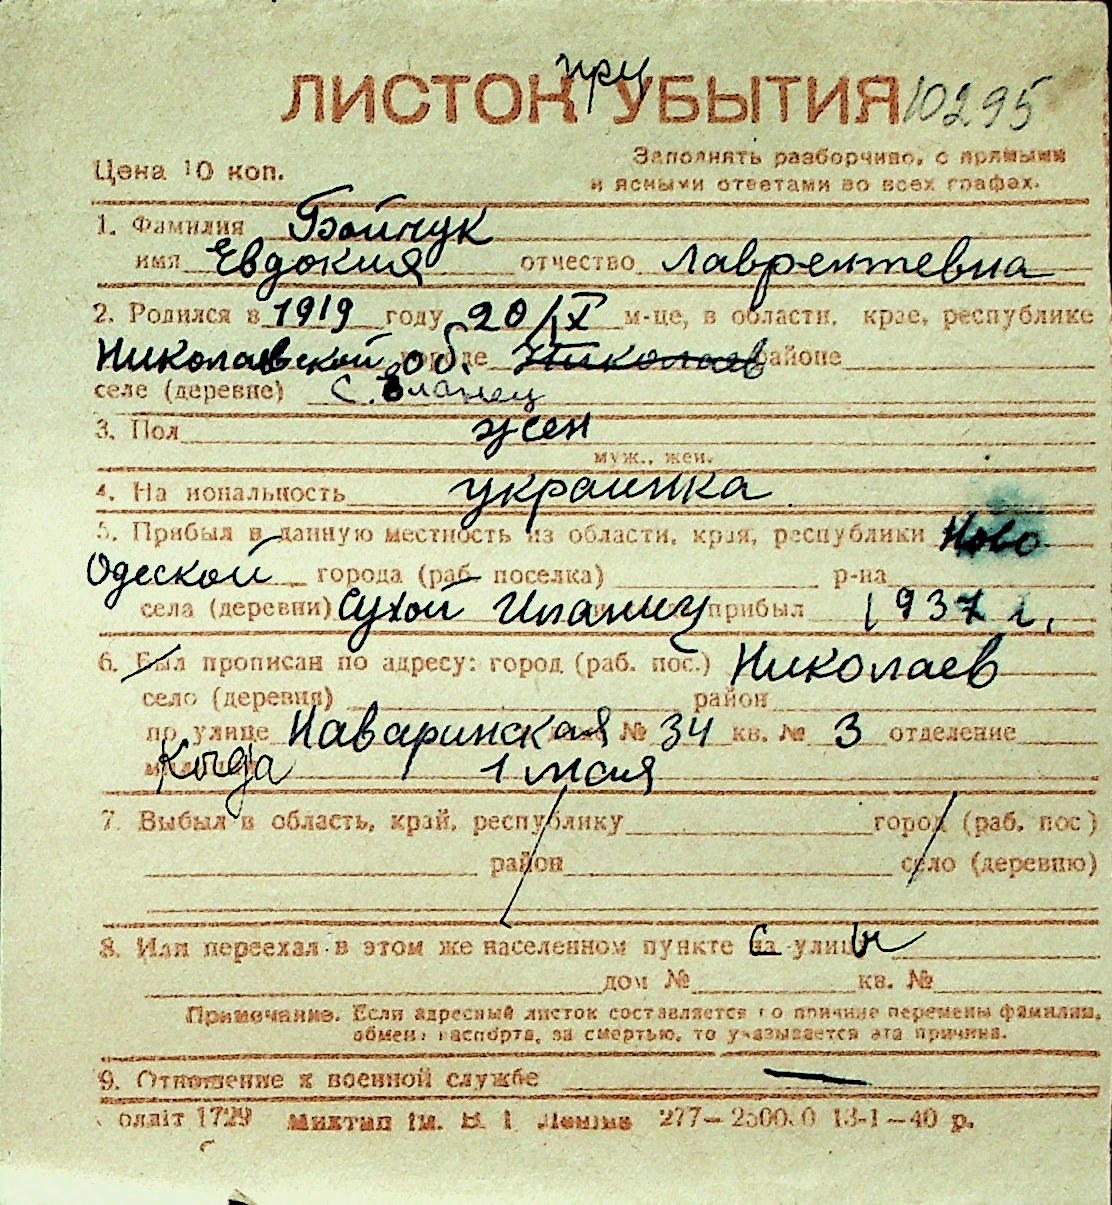 ЛИСТОК при УБЫТИЯ 10295
Цена 10 коп.
Заполнять разборчиво, с прямыми
и ясными ответами во всех графах.
1. Фамилия Бойчук
имя Евдокия отчество Лаврентевна
2. Родился в 1919 году 20/IX м-це, в области, крае, республике
Николаевской об. городе Николаев районе
селе (деревне) с.
3. Пол жен
муж., жен.
4. Национальность украинка
5. Прибыл в данную местность из области, края, республики Ново
Одеской города (раб поселка) р-на
села (деревни) Сухой прибыл 1937 г.
6. Был прописан по адресу: город (раб. пос.) Николаев
село (деревня) район
по улице Наваринская № 34 кв. № 3 отделение
Когда 1 мая
7. Выбыл в область, край, республику город (раб. пос)
район село (деревню)
8. Или переехал в этом же населенном пункте с улицы
дом № кв. №
Примечание. Если адресный листок составляется по причине перемены фамилии,
обмена паспорта, за смертью, то указывается эта причина.
9. Отношение к военной службе —
олліт 1729 Миктип ім. В. І. Леніна 277— 13-1—40 р.